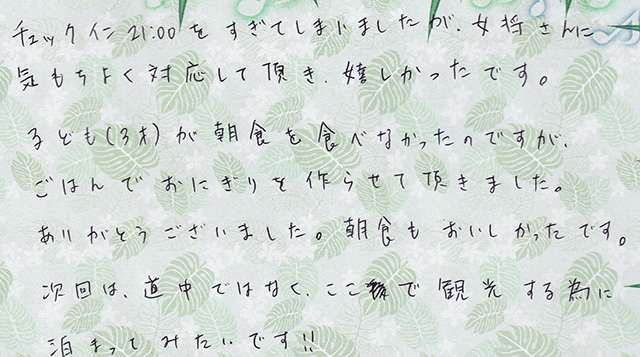 チェックイン21:00をすぎてしまいましたが、女将さんに
気もちよく対応して頂き、嬉しかったです。
子ども(3才)が朝食を食べなかったのですが、
ごはんでおにぎりを作らせて頂きました。
ありがとうございました。朝食もおいしかったです。
次回は、道中ではなく、ここで観光する為に
泊まってみたいです!!